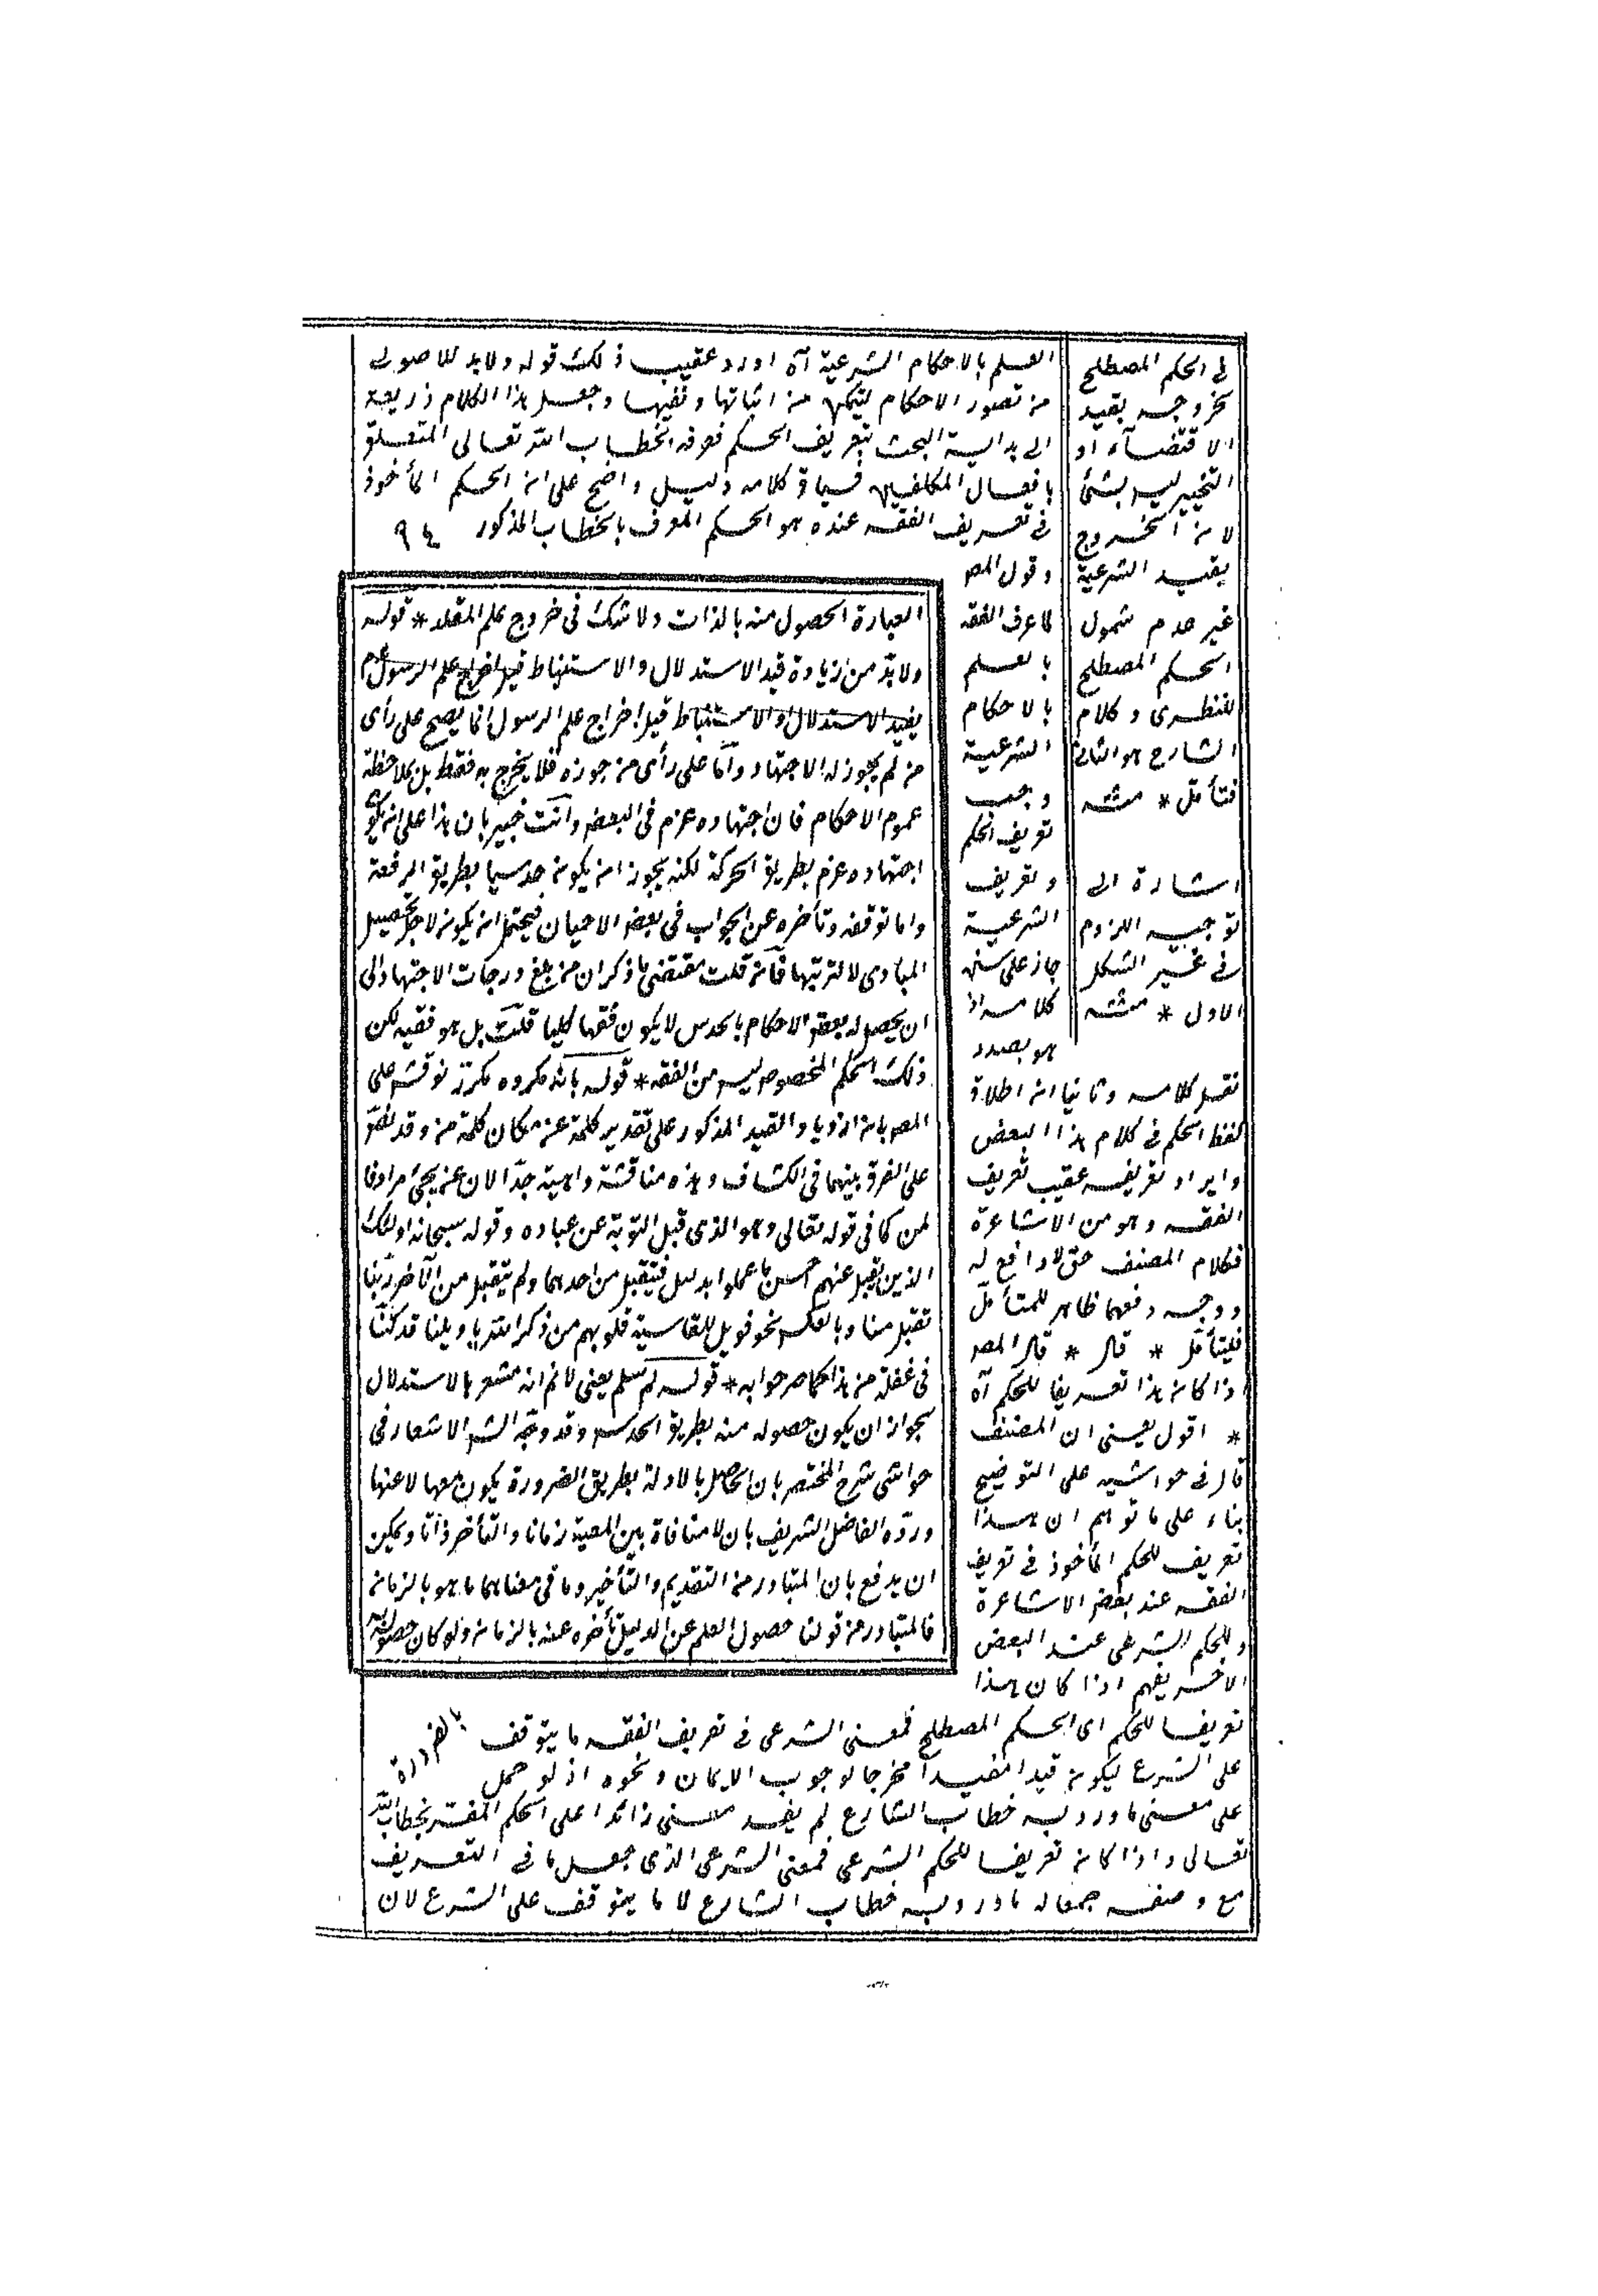 العلم بالاحكام الشرعية آه اورد عقيب ذلك قوله ولا بد للاصولى
من تصور الاحكام ليتمكن من اثباتها ونفيها وجعل هذا الكلام ذريعة
الى بداية البحث بتعريف الحكم فعرفه بخطاب الله تعالى المتعلق
بافعال المكلفين فسياق كلامه دليل واضح على ان الحكم المأخوذ
فى تعريف الفقه عنده هو الحكم المعرف بالخطاب المذكور ٩٤
وقول المص
لما عرف الفقه
بالعلم
بالاحكام
الشرعية
وجب
تعريف الحكم
وتعريف
الشرعية
جاز على سنن
كلامه اذ
هو بصدد
نقل كلامه وثانيا ان اطلاق
لفظ الحكم فى كلام هذا البعض
وايراد تعريفه عقيب تعريف
الفقه وهو من الاشاعرة
فكلام المصنف حق لا دافع له
ووجه دفعهما ظاهر للمتأمل
فليتأمل * قال * قال المص
اذا كان هذا تعريفا للحكم آه
* اقول يعنى ان المصنف
قال فى حواشيه على التوضيح
بناء على ما توهم ان هذا
تعريف للحكم المأخوذ فى تعريف
الفقه عند بعض الاشاعرة
وللحكم الشرعى عند البعض
الاخر يفهم اذا كان هذا
تعريفا للحكم اى الحكم المصطلح فمعنى الشرعى فى تعريف الفقه ما يتوقف
على الشرع ليكون قيدا مفيدا مخرجا لوجوب الايمان ونحوه اذ لو حمل
على معنى ما ورد به خطاب الشارع لم يفد معنى زائدا على الحكم المفسر بخطاب الله
تعالى واذا كان تعريفا للحكم الشرعى فمعنى الشرعى الذى جعل ما فى التعريف
مع وصفه جمعا له ما ورد به خطاب الشارع لا ما يتوقف على الشرع لان
فى الحكم المصطلح
بخروجه بقيد
الاقتضاء او
التخيير ليس بشئ
لان الخروج
بقيد الشرعية
غير عدم شمول
الحكم المصطلح
للنظرى وكلام
الشارح هو الثانى
فتأمل * منه
اشارة الى
توجيه اللزوم
فى غير الشكل
الاول * منه
العبارة الحصول منه بالذات ولا شك فى خروج علم المقلد * قوله
ولا بد من زيادة قيد الاستدلال والاستنباط قيل اخراج علم الرسول عم
بقيد الاستدلال او الاستنباط قيل اخراج علم الرسول انما يصح على رأى
من لم يجوز له الاجتهاد واما على رأى من جوزه فلا يخرج به فقط بل بملاحظة
عموم الاحكام فان اجتهاده عزم فى البعض وانت خبير بان هذا على ان يكون
اجتهاده عزم بطريق الحركة لكنه يجوز ان يكون حدسيا بطريق الدفعة
واما توقفه وتأخره عن الجواب فى بعض الاحيان فيحتمل ان يكون لاجل تحصيل
المبادى لا لترتيبها فان قلت مقتضى ما ذكر ان من بلغ درجات الاجتهاد الى
ان يحصل له بعض الاحكام بالحدس لا يكون فقيها كليا قلت بل هو فقيه لكن
ذلك الحكم المخصوص ليس من الفقه * قوله بانه مكروه مكرر نوقش على
المص بان ازدياد القيد المذكور على تقدير كلمة عن مكان كلمة من وقد نص
على الفرق بينهما فى الكشاف وهذه مناقشة واهية جدا لان عن يجئ مرادفا
لمن كما فى قوله تعالى وهو الذى قبل التوبة عن عباده وقوله سبحانه اولئك
الذين يتقبل عنهم احسن ما عملوا بدليل فتقبل من احدهما ولم يتقبل من الآخر ربنا
تقبل منا وبالعكس نحو فويل للقاسية قلوبهم من ذكر الله يا ويلنا قد كنا
فى غفلة من هذا حواه * قوله لم سلم يعنى لا نم انه مشعر بالاستدلال
لجواز ان يكون حصوله منه بطريق الحدس وقد وجه الش الاشعار فى
حواشى شرح المختصر بان الحاصل بالادلة بطريق الضرورة يكون معها لا عنها
ورده الفاضل الشريف بان لا منافاة بين المعية زمانا والتأخر ذاتا ويمكن
ان يدفع بان المتبادر من التقديم والتأخير وما فى معناهما ما هو بالزمان
فالمتبادر من قولنا حصول العلم عن الدليل تأخره عنه بالزمان ولو كان حصوله
بالضرورة